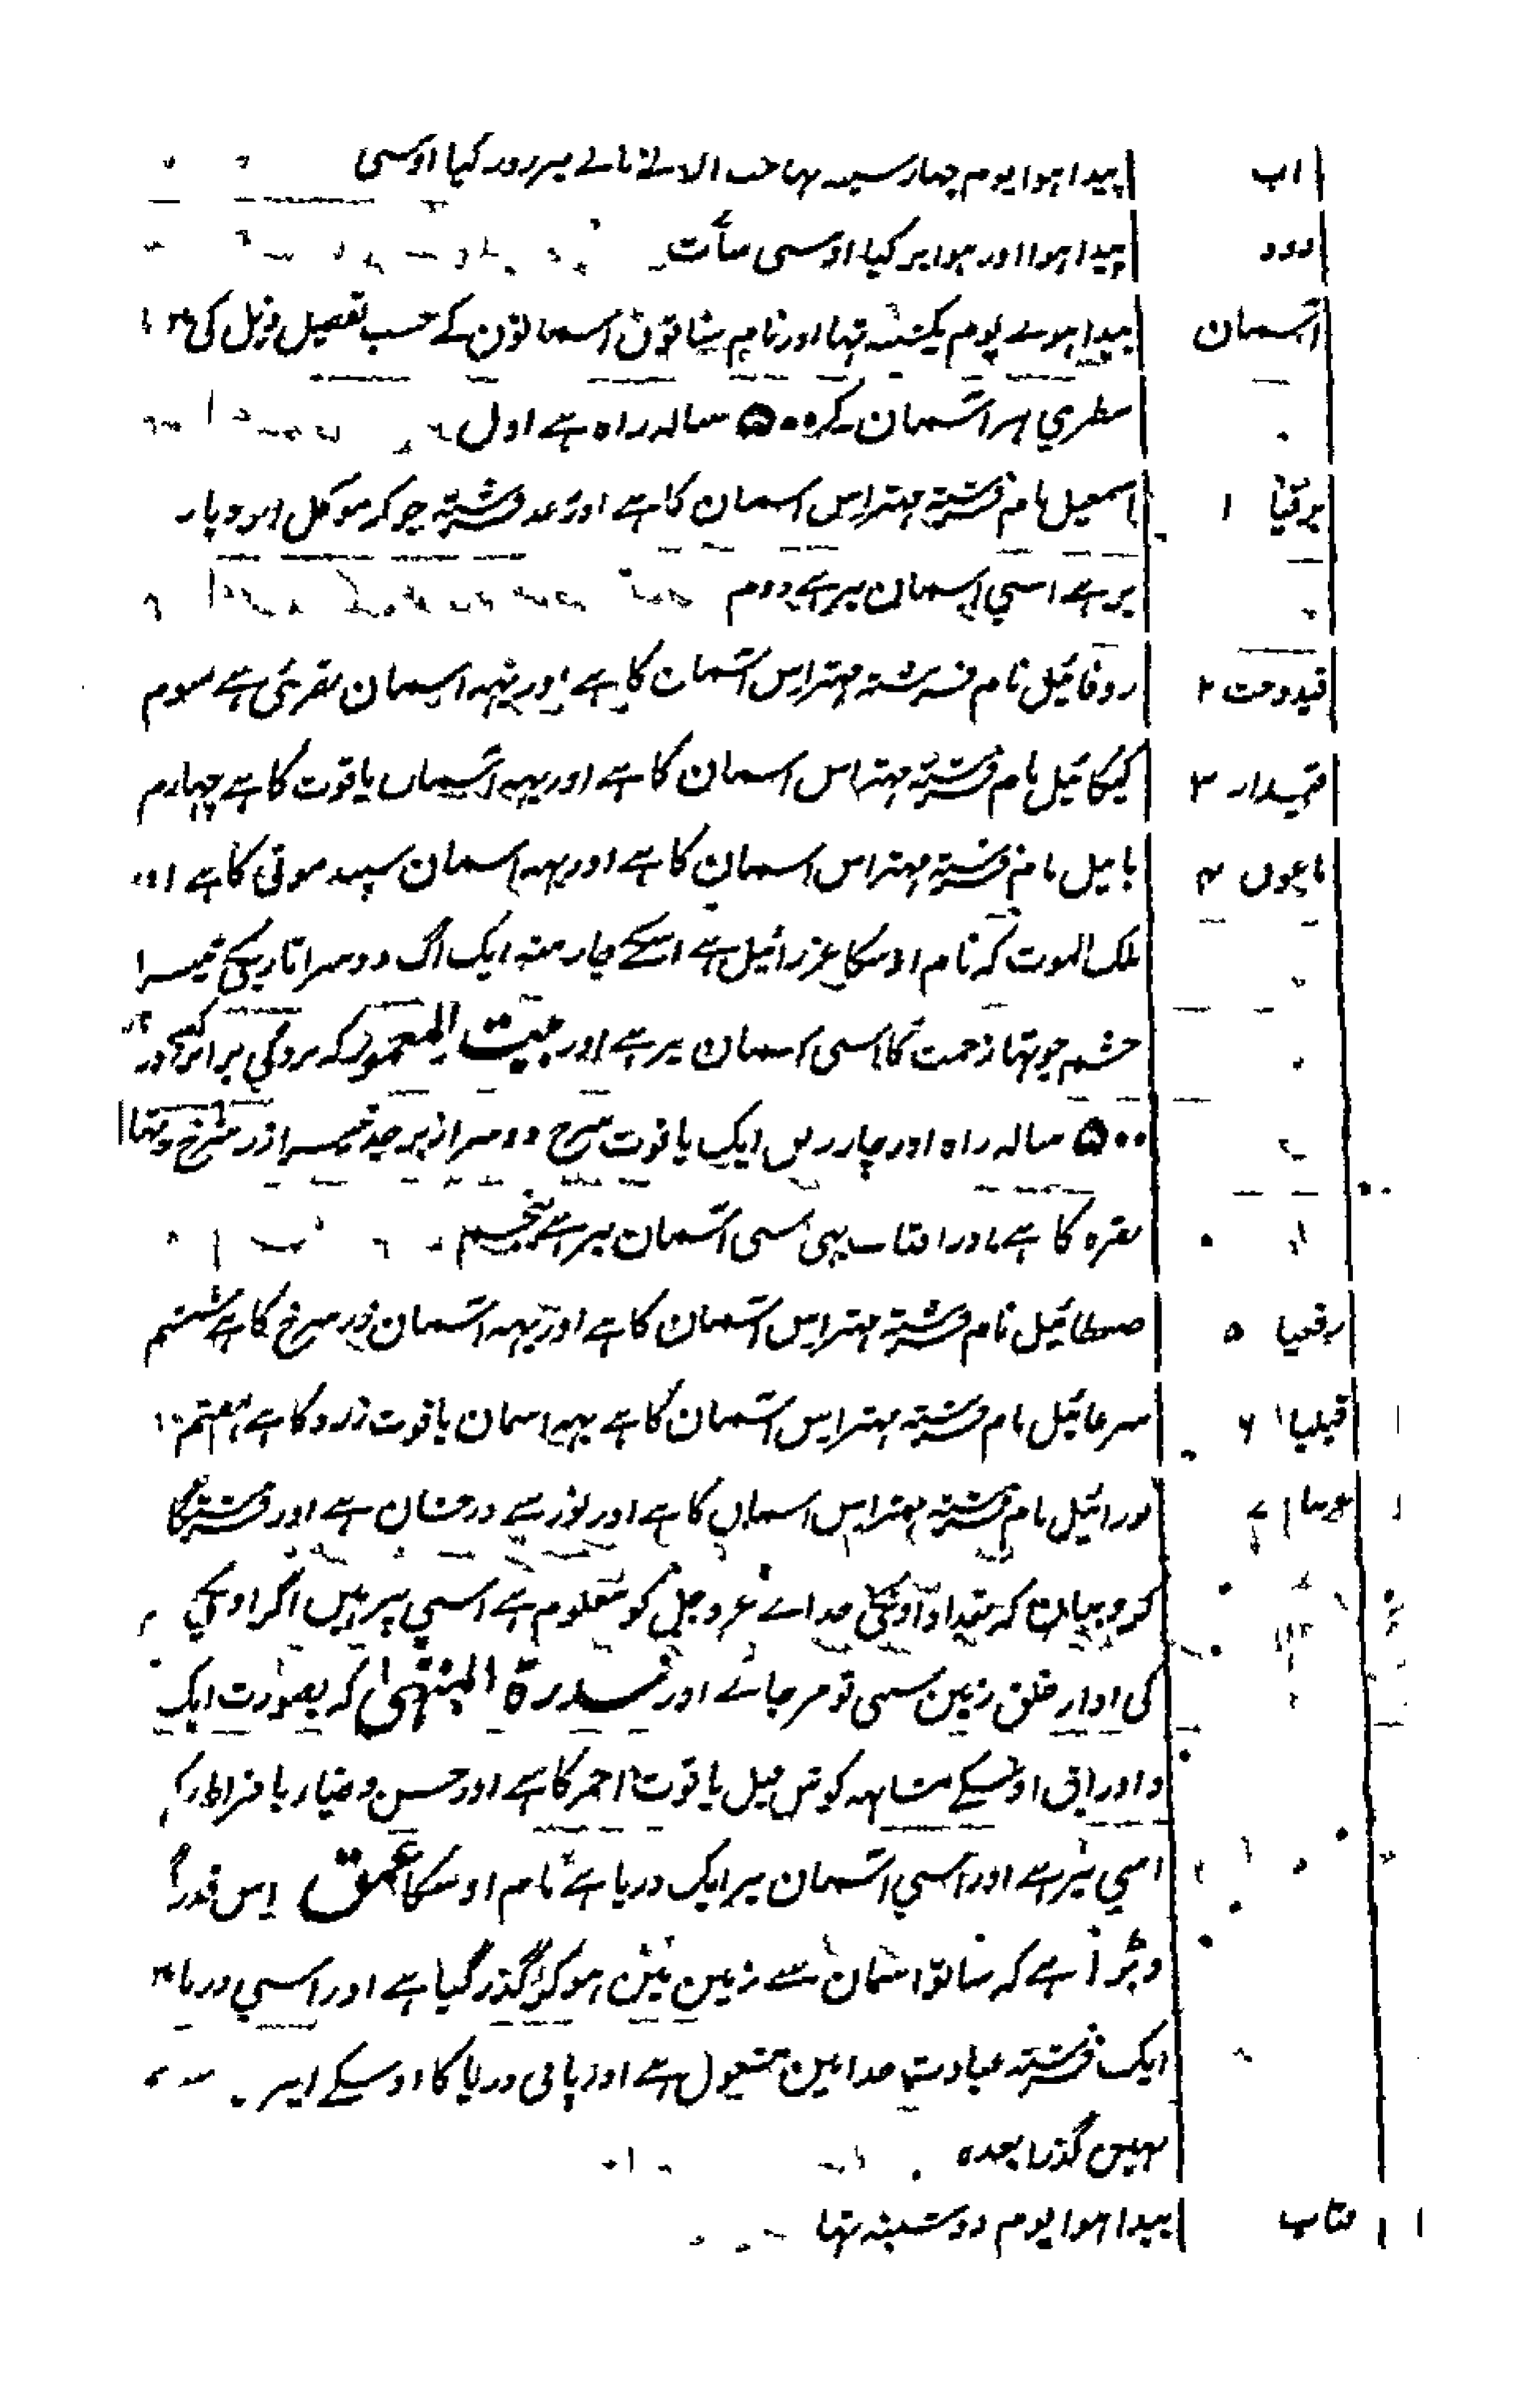 آب پیدا ہوا یوم چہار سنبہ تہا حب اللہ تعالے نے کیا اوسی
دود پیدا ہوا اور ہوا پر گیا اوسی سأت
آسمان پیدا ہوے یوم یکشنبہ تہا اور نام ساتون اسمانون کے حسب تفصیل ذیل کی
سطبري ہر آسمان کے ۵۰۰ سالہ راہ ہے اول
برقیا ۱ اسمعیل نام فرشتہ مہتر اس اسمان کا ہے اور رعد فرشتہ جو کہ موکل ابر و باد
پر ہے اسي اسمان پر ہے دوم
قیدوحت ۲ روفائیل نام فرشتہ مہتر اس آسمان کا ہے اور یہہ اسمان نقرئی ہے سوم
قیدار ۳ کیکائیل نام فرشتہ مہتر اس اسمان کا ہے اور یہہ آسمان یاقوت کا ہے چہارم
ماعون ۴ بابیل نام فرشتہ مہتر اس اسمان کا ہے اور یہہ اسمان سپید موتی کا ہے
ملک الموت کہ نام اوسکا عزرائیل ہے اسکے چار منہ ایک آگ دوسرا تاریکی تیسرا
خشم چوتہا رحمت کا اسی اسمان پر ہے اور بیت المعمور کہ بزرگي برابر
۵۰۰ سالہ راہ اور چار رکن ایک یاقوت سرخ دوسرا زبرجد تیسرا زر سرخ چوتہا
نقرہ کا ہے اور افتاب بہی اسی آسمان پر ہے پنجم
رفعیا ۵ صطائیل نام فرشتہ مہتر اس آسمان کا ہے اور یہہ آسمان زر سرخ کا ہے ششم
قبلیا ۶ سرعائیل نام فرشتہ مہتر اس آسمان کا ہے یہہ اسمان یاقوت زرد کا ہے ہفتم
۷ نورائیل نام فرشتہ مہتر اس اسمان کا ہے اور نور سے درخشان ہے اور فرشتہ
کروبیان کہ تعداد اونکی خداے عزوجل کو معلوم ہے اسي پر ہین اگر اونکي
کی اواز خلق زمین سنی تو مر جائے اور سدرۃ المنتہیٰ کہ بصورت ایک
و اوراق اوسکے مشابہہ گوش فیل یاقوت احمر کا ہے اور حسن و ضیا
اسي پر ہے اور اسي آسمان پر ایک دریا ہے نام اوسکا عمق اس قدر
و بڑا ہے کہ ساتو اسمان سے زمین ہوکر گذر گیا ہے اور اسي دریا
ایک فرشتہ عبادت خدا مین مشغول ہے اور پانی دریا کا اوسکے
نہین گذرا بعدہ
پیدا ہوا یوم دوشنبہ تہا